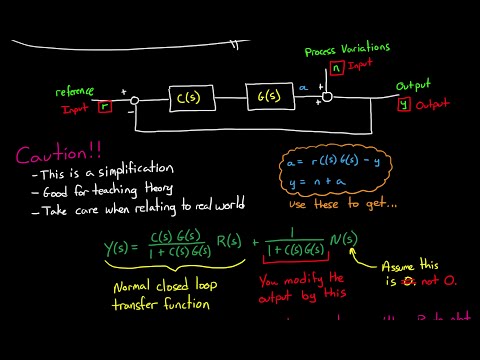 Process Variations
n Input
reference
Input r
+
−
C(s)
G(s)
a
+
+
Output
y Output
Caution!!
- This is a simplification
- Good for teaching theory
- Take care when relating to real world
a = r C(s) G(s) - y
y = n + a
use these to get...
Y(s) = C(s) G(s) / 1 + C(s) G(s) R(s) + 1 / 1 + C(s) G(s) N(s)
Normal closed loop
transfer function
You modify the
output by this
Assume this
is 0. not 0.